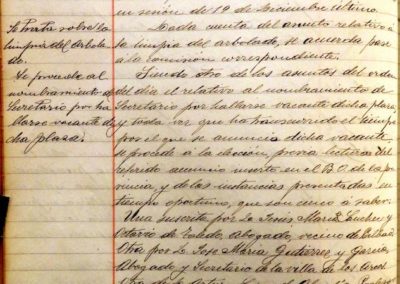 Se trata sobre la
limpia del arbola-
do.
Se procede al
nombramiento de
Secretario por ha-
llarse vacante di-
cha plaza.
en sesión de 19 de Diciembre último.
Dada cuenta del asunto relativo á
la limpia del arbolado, se acuerda pase
á la comision correspondiente.
Siendo otro de los asuntos del orden
del dia el relativo al nombramiento de
Secretario por hallarse vacante dicha plaza,
y toda vez que ha transcurrido el tiempo
por el que se anuncia dicha vacante,
se procede á la elección, previa lectura del
referido anuncio inserto en el B. O. de la pro-
vincia y de las instancias presentadas en
tiempo oportuno, que son cinco á saber:
Una suscrita por D. Jesús María
y Octavio de Toledo, Abogado, vecino de
Otra por D. José María Gutierrez y García,
Abogado y Secretario de la villa de los